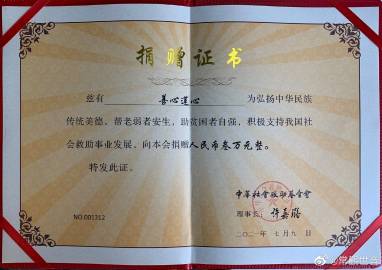 捐赠证书
兹有 善心莲心 为弘扬中华民族
传统美德，帮老弱者安生，助贫困者自强，积极支持我国社
会救助事业发展，向本会捐赠人民币叁万元整。
特发此证。
中华社会救助基金会
理事长：许嘉璐
NO.001312
二〇二一年 七月 九 日